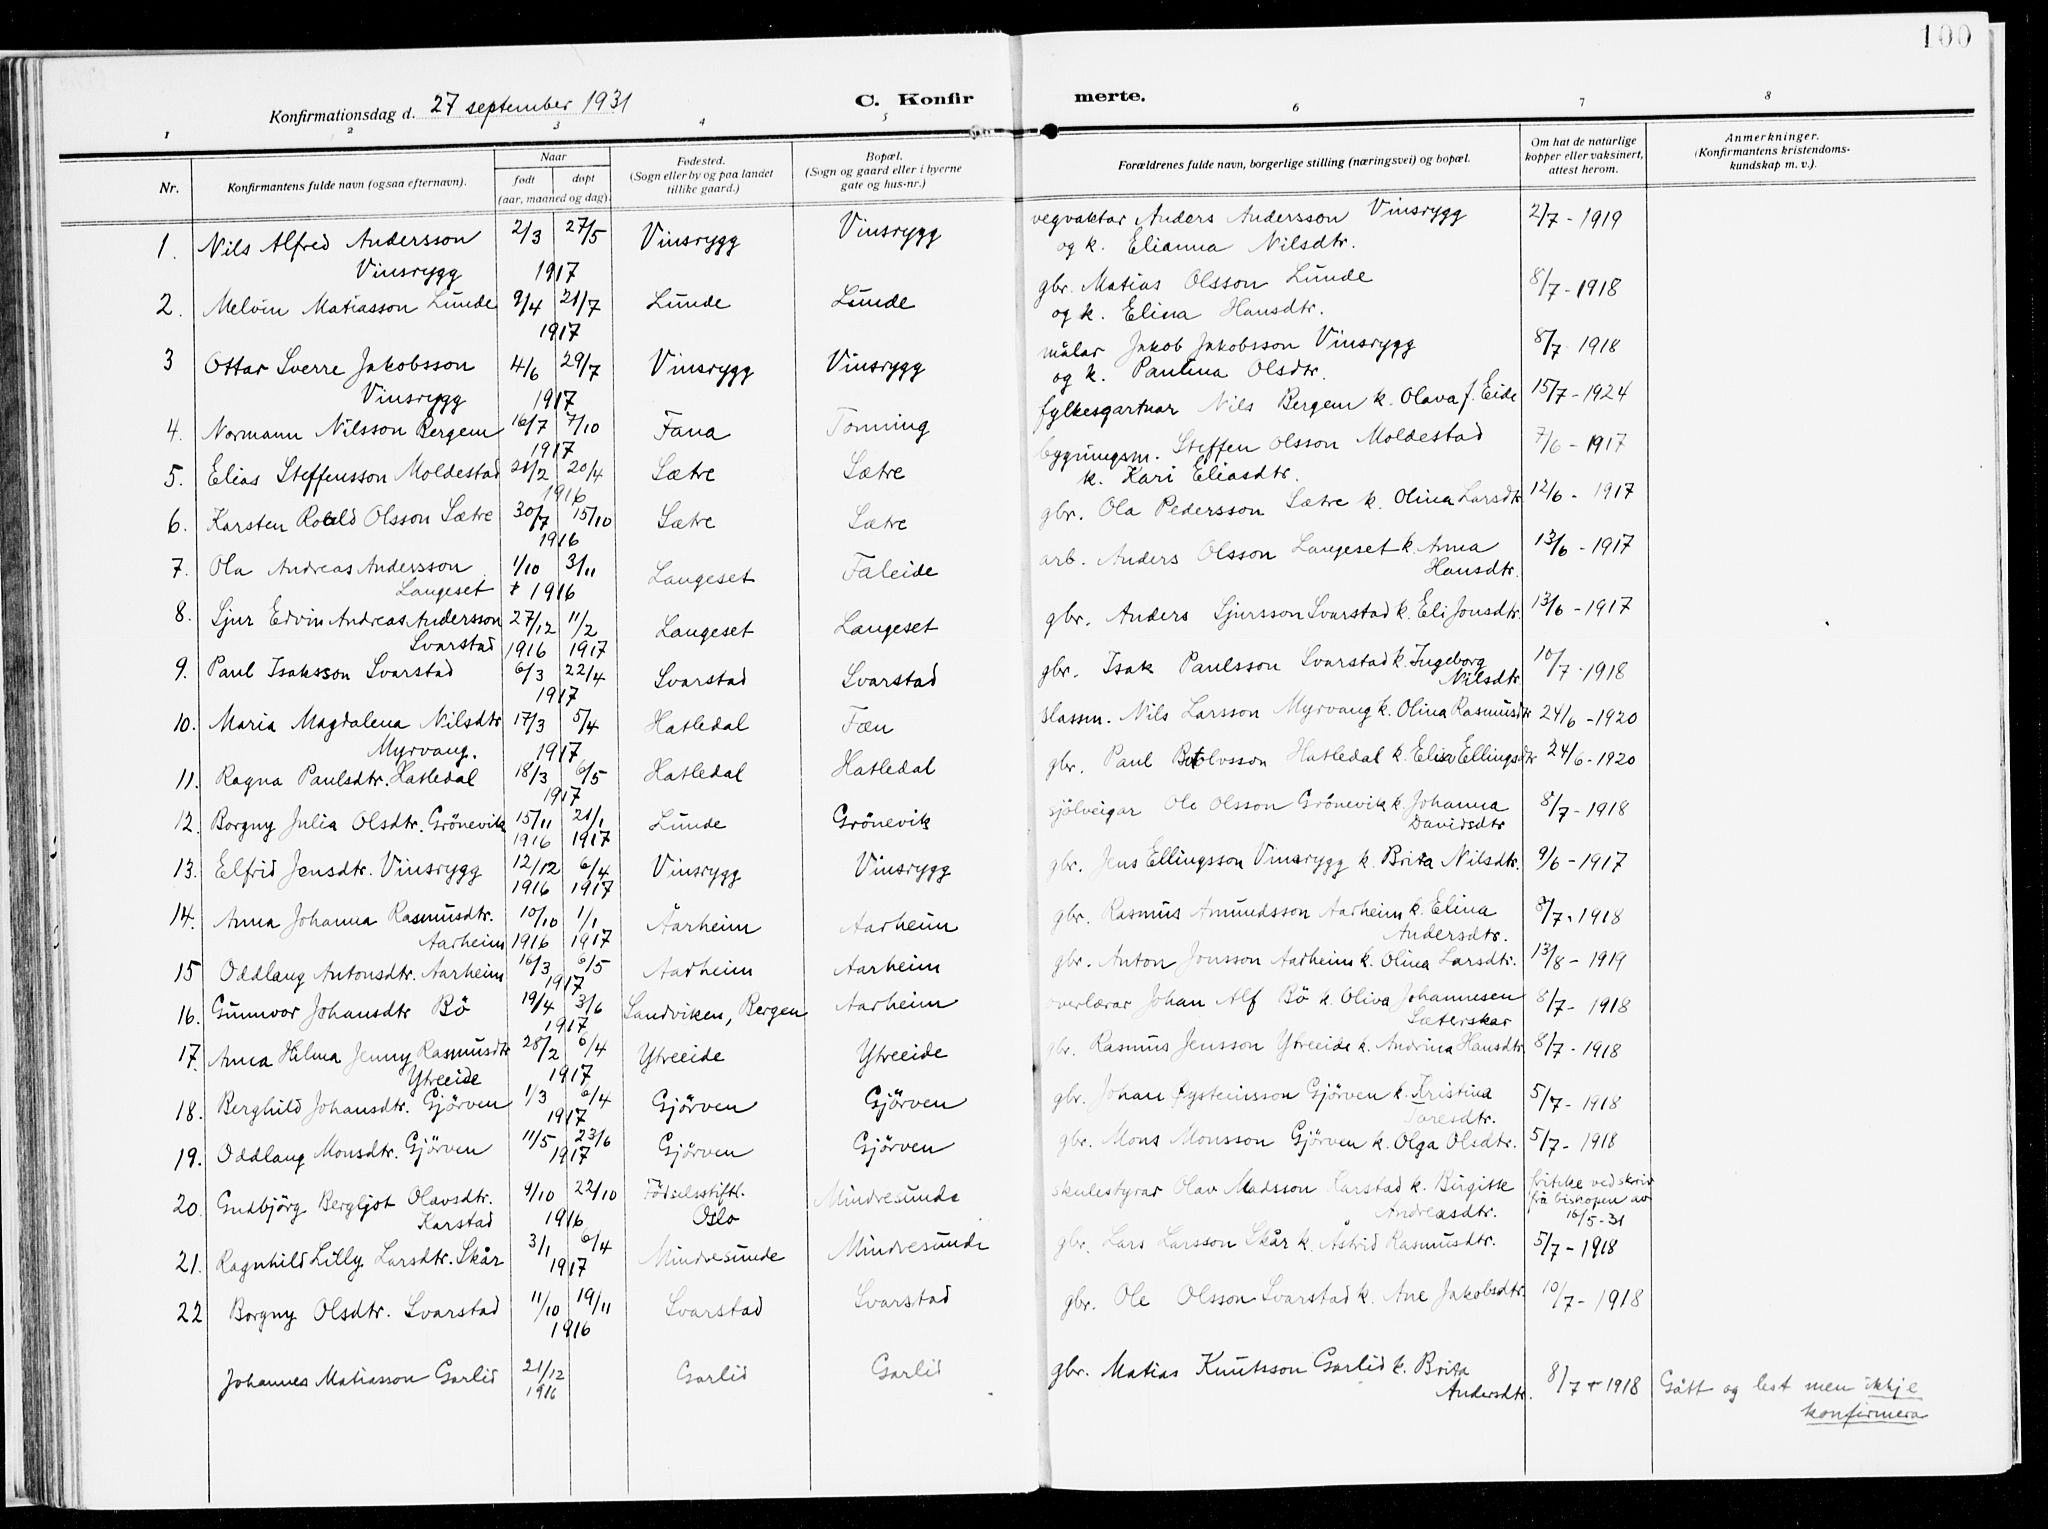 100
Konfirmationsdag d. 27 september 1931 C. Konfirmerte.
1 2 3 4 5 6 7 8
Nr. Konfirmantens fulde navn (ogsaa efternavn). Naar født døpt (aar, maaned og dag). Fødested. (Sogn eller by og paa landet tillike gaard.) Bopæl. (Sogn og gaard eller i byerne gate og hus-nr.) Forældrenes fulde navn, borgerlige stilling (næringsvei) og bopæl. Om hat de naturlige kopper eller vaksinert, attest herom. Anmerkninger. (Konfirmantens kristendoms-kundskap m. v.).
1. Nils Alfred Andersson 2/3 27/5 Vinsrygg Vinsrygg vegvaktar Anders Andersson Vinsrygg 2/7 - 1919
Vinsrygg 1917 og k. Elianna Nilsdtr.
2. Melvin Matiasson Lunde 9/4 21/7 Lunde Lunde gbr. Matias Olsson Lunde 8/7 - 1918
1917 og k. Elina Hansdtr.
3 Ottar Sverre Jakobsson 4/6 29/7 Vinsrygg Vinsrygg målar Jakob Jakobsson Vinsrygg 8/7 - 1918
Vinsrygg 1917 og k. Paulina Olsdtr.
4. Normann Nilsson Bergem 16/7 7/10 Fana Tonning fylkesgartnar Nils Bergem k. Olava f. Eide 15/7 - 1924
1917
5. Elias Steffensson Moldestad 21/2 20/4 Sætre Sætre byggningsm. Steffen Olsson Moldestad 7/6 - 1917
1916 k. Kari Eliasdtr.
6. Karsten Roald Olsson Sætre 30/7 15/10 Sætre Sætre gbr. Ola Pedersson Sætre k. Olina Larsdtr 12/6 - 1917
1916
7. Ola Andreas Andersson 1/10 3/11 Langeset Faleide arb. Anders Olsson Langeset k. Anna 13/6 - 1917
Langeset 1916 Hansdtr.
8. Sjur Edvin Andreas Andersson 27/12 11/2 Langeset Langeset gbr. Anders Sjursson Svarstad k. Eli Jonsdtr. 13/6 - 1917
Svarstad 1916 1917
9. Paul Isaksson Svarstad 6/3 22/4 Svarstad Svarstad gbr. Isak Paulsson Svarstad k. Ingeborg 10/7 - 1918
1917 Nilsdtr.
10. Maria Magdalena Nilsdtr 17/3 5/4 Hatledal Fæn plassm. Nils Larsson Myrvang k. Olina Rasmusdtr 24/6 - 1920
Myrvang. 1917
11. Ragna Paulsdtr. Hatledal 18/3 6/5 Hatledal Hatledal gbr. Paul Botolvsson Hatledal k. Elisa Ellingsdtr 24/6 - 1920
1917
12. Borgny Julia Olsdtr. Grönevik 15/11 21/1 Lunde Grönevik sjölveigar Ole Olsson Grönevik k. Johanna 8/7 - 1918
1916 1917 Davidsdtr
13. Elfrid Jensdtr. Vinsrygg 12/12 6/4 Vinsrygg Vinsrygg gbr. Jens Ellingsson Vinsrygg k. Brita Nilsdtr. 9/6 - 1917
1916 1917
14. Anna Johanna Rasmusdtr. 10/10 1/1 Aarheim Aarheim gbr. Rasmus Amundsson Aarheim k. Elina 8/7 - 1918
Aarheim 1916 1917 Andersdtr.
15 Oddlaug Antonsdtr. Aarheim 16/3 6/5 Aarheim Aarheim gbr. Anton Jonsson Aarheim k. Olina Larsdtr. 13/8 - 1919
1917
16. Gunnvor Johansdtr Bö 19/4 3/6 Sandviken, Bergen Aarheim overlærar Johan Alf Bö k. Oliva Johannesen 8/7 - 1918
1917 Sæterskar
17. Anna Hilma Jenny Rasmusdtr 28/2 6/4 Ytreeide Ytreeide gbr. Rasmus Jensson Ytreeide k. Andrina Hansdtr. 8/7 - 1918
Ytreeide 1917
18. Berghild Johansdtr. Gjörven 1/3 6/4 Gjörven Gjörven gbr. Johan Øysteinsson Gjörven k. Kristina 5/7 - 1918
1917 Toresdtr.
19. Oddlaug Monsdtr. Gjörven 11/5 23/6 Gjörven Gjörven gbr. Mons Monsson Gjörven k. Olga Olsdtr. 5/7 - 1918
1917
20. Gudbjörg Bergljot Olavsdtr. 9/10 22/10 Födselsstiftl. Mindresunde skulestyrar Olav Madsson Karstad k. Birgitte fritke ved skriv
Karstad 1916 Oslo Andreasdtr. frå bispopen av
16/5-31
21. Ragnhild Lilly Larsdtr. Skår 3/1 6/4 Mindresunde Mindresunde gbr. Lars Larsson Skår k. Åstrid Rasmusdtr. 5/7 - 1918
1917
22 Borgny Olsdtr. Svarstad 11/10 19/11 Svarstad Svarstad gbr. Ole Olsson Svarstad k. Ane Jakobsdtr. 10/7 - 1918
1916
Johannes Matiasson Garlid 21/12 Garlid Garlid gbr. Matias Knutsson Garlid k. Brita 8/7 - 1918 Gått og lest men ikkje
1916 Andersdtr. konfirmera